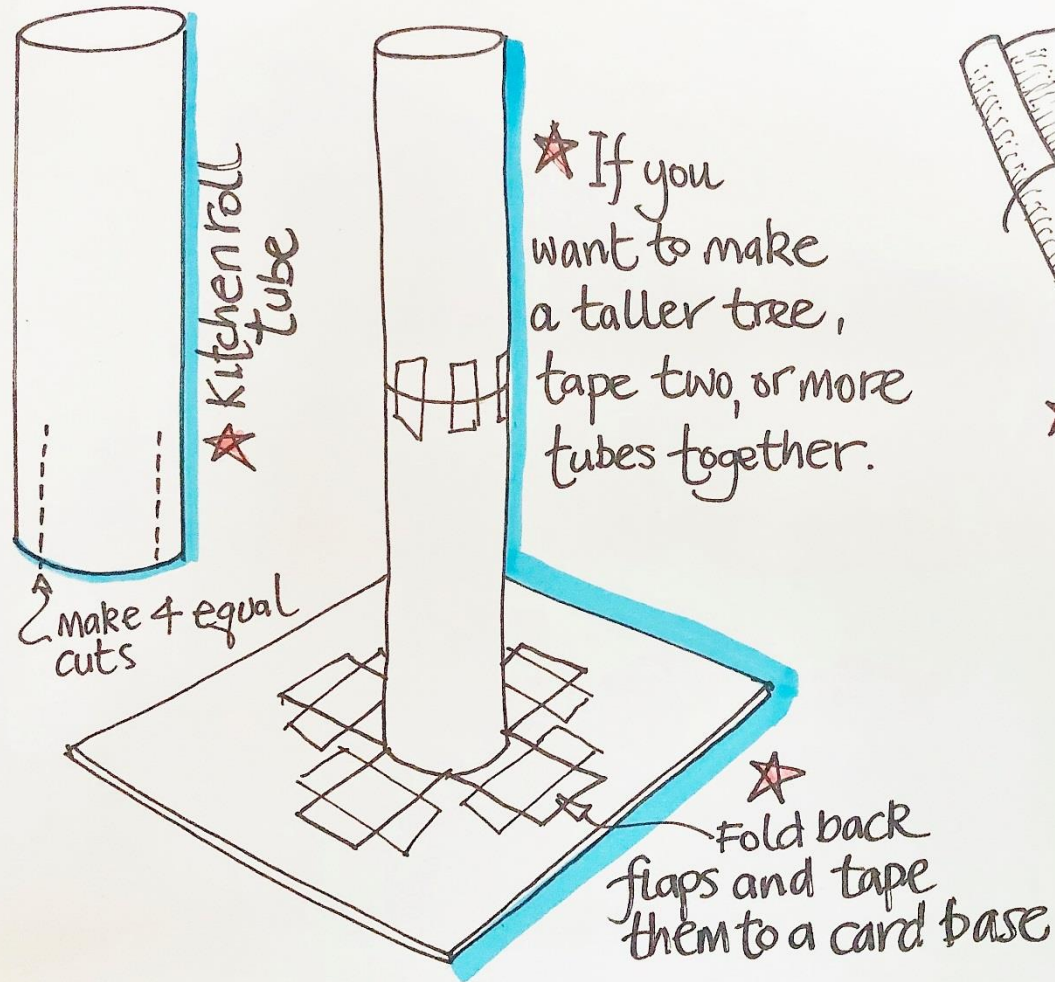 Kitchen roll
tube
make 4 equal
cuts
If you
want to make
a taller tree,
tape two, or more
tubes together.
Fold back
flaps and tape
them to a card base